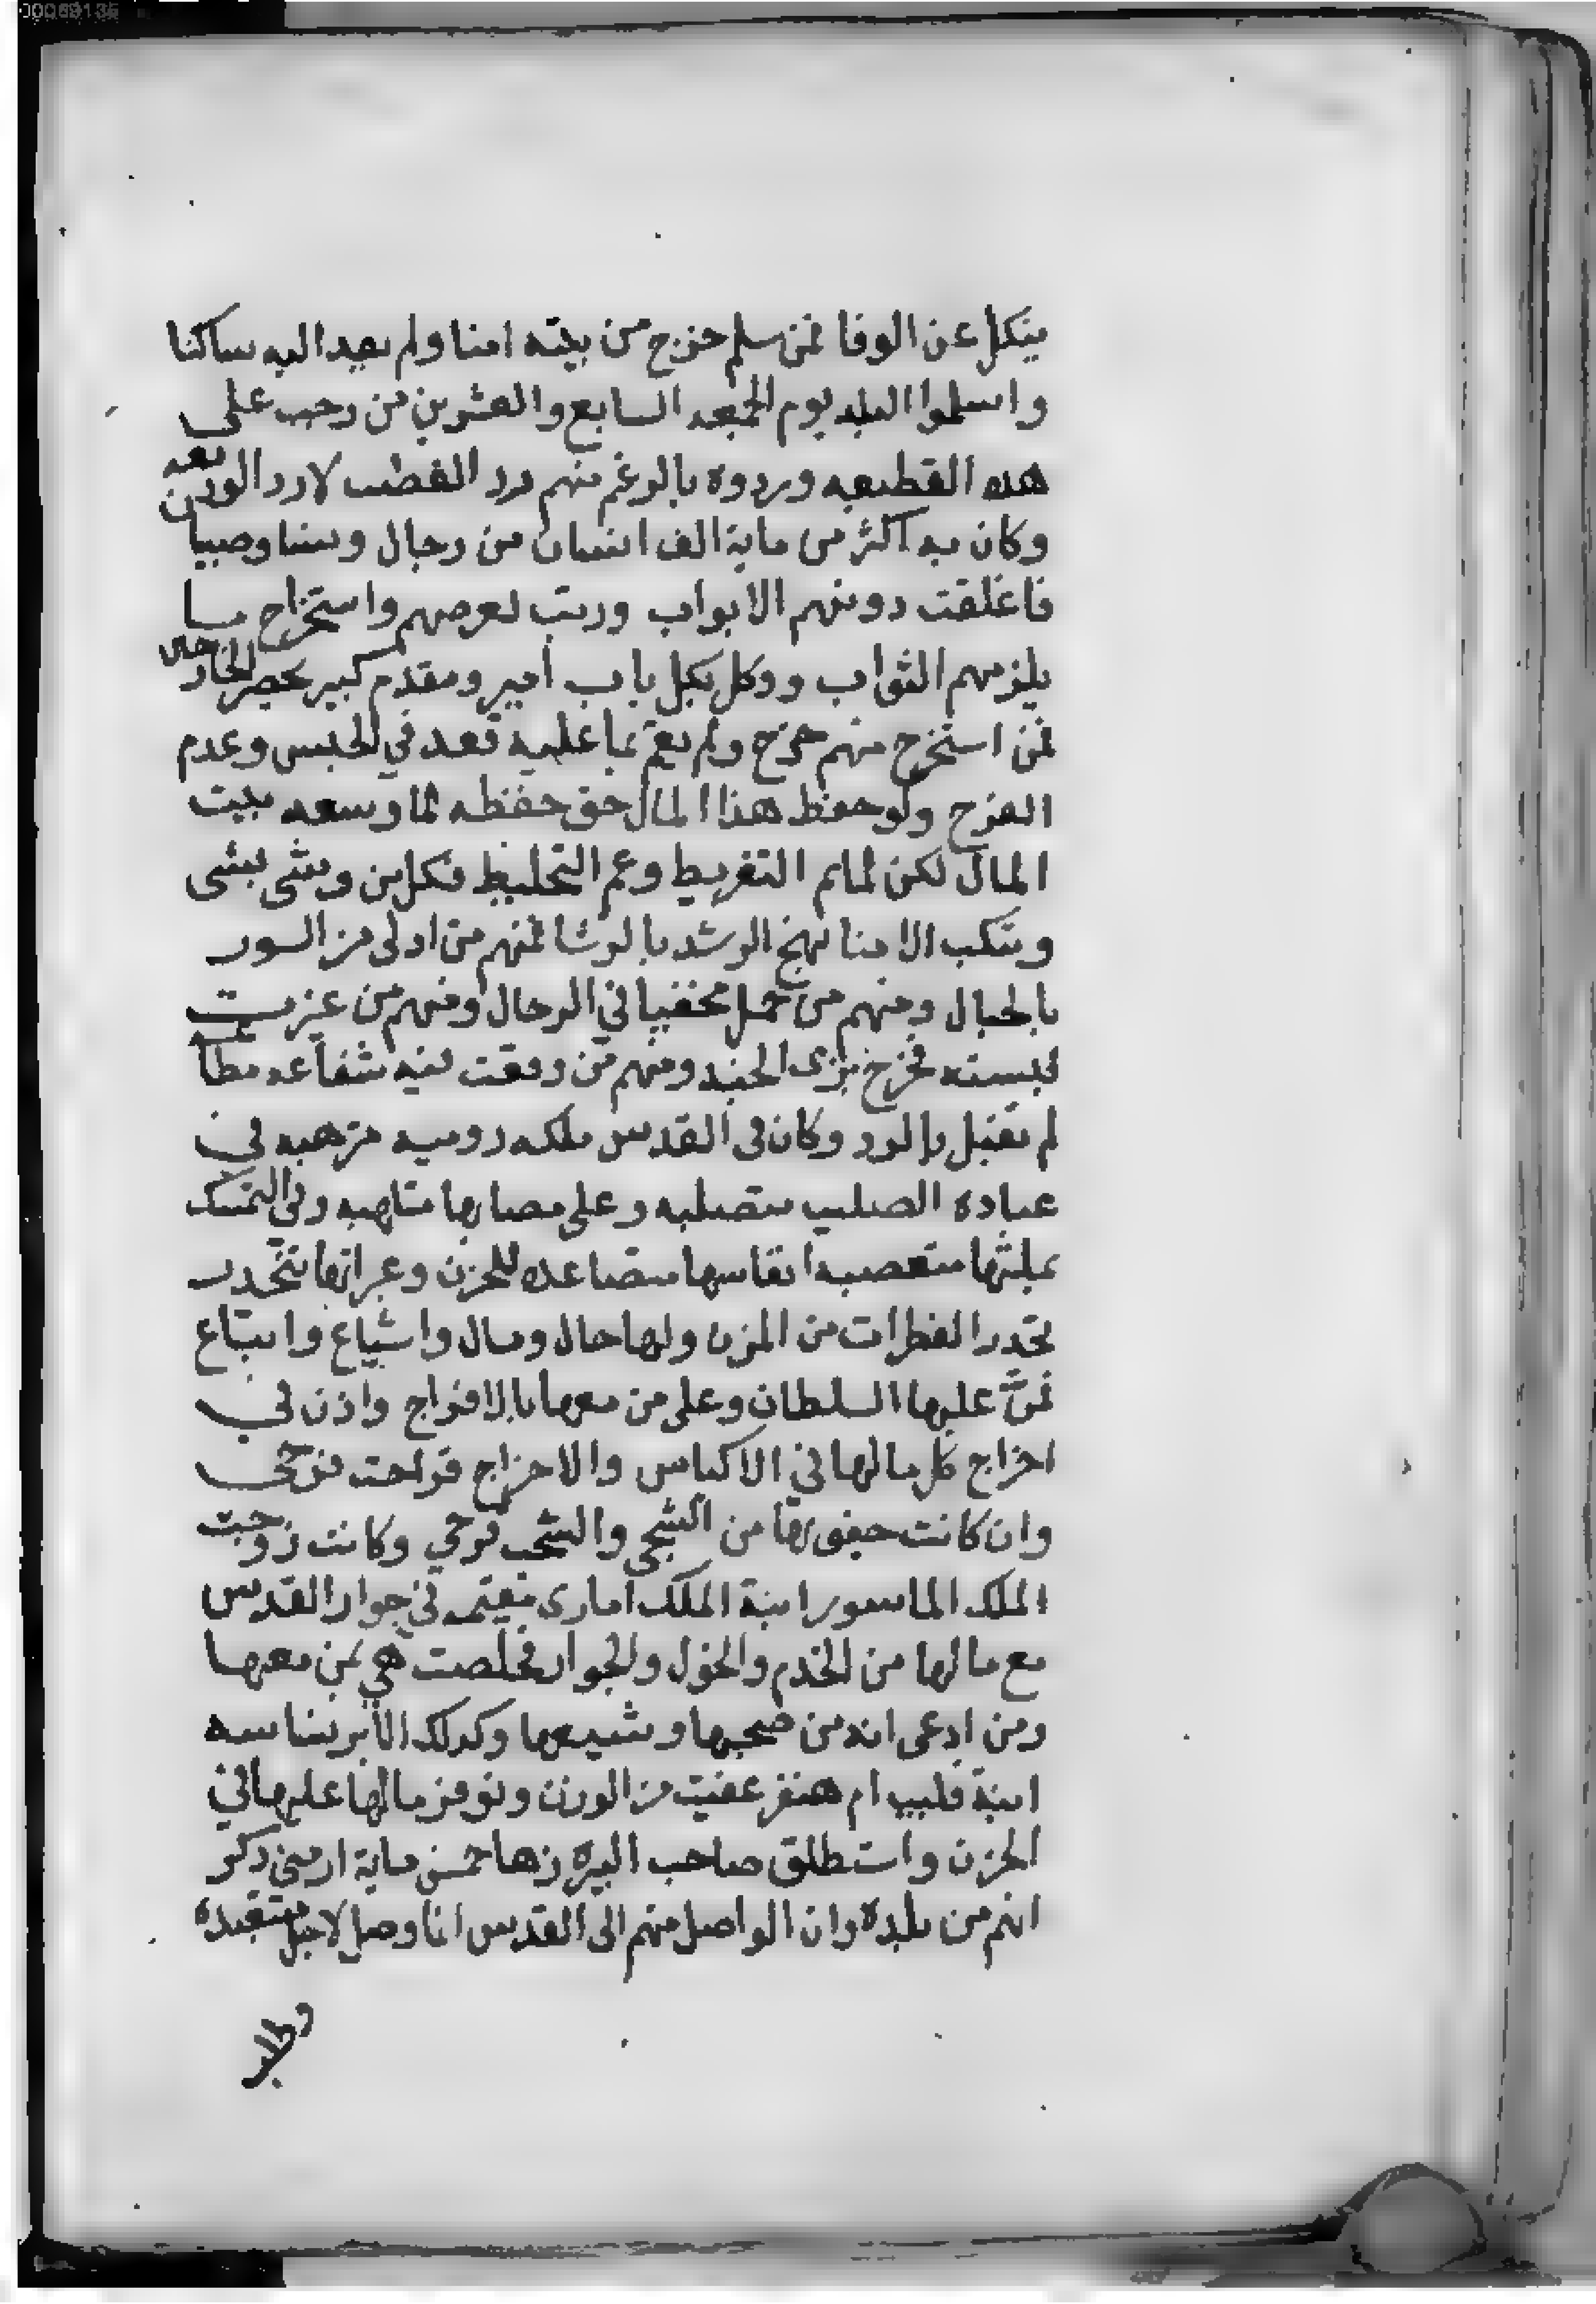 ينكل عن الوفا فمن سلم خرج من بيته امنا ولم يعد اليه ساكنا
واسلموا البلد يوم الجمعه السابع والعشرين من رجب على
هذه القطيعه وردوه بالرغم منهم رد الغصب لا رد الوديعه
وكان به اكثر من ماية الف انسان من رجال ونسا وصبيان
فاغلقت دونهم الابواب ورتب لعرضهم واستخراج ما
يلزمهم النواب ووكل بكل باب امير ومقدم كبير يحصر الخارجين
فمن استخرج منهم خرج ولم يقم بما عليه قعد في الحبس وعدم
الفرج ولو حفظ هذا المال حق حفظه لما وسعه بيت
المال لكن لما تم التفريط وعم التخليط فكل من رشى مشى
وتنكب الامنا نهج الرشد بالرشا فمنهم من ادلى من السور
بالحبال ومنهم من حمل مخفيا في الرحال ومنهم من غيرت
لبسته فخرج بزي الجند ومنهم من وقعت فيه شفاعه مطاعه
لم تقبل بالرد وكان في القدس ملكه روميه مترهبه في
عباده الصليب متصلبه وعلى مصابها متلهبه وفي التمسك
بملتها متعصبه انفاسها متصاعده للحزن وعبراتها تتحدر
تحدر القطرات من المزن ولها حال ومال واشياع واتباع
فمنّ عليها السلطان وعلى من معها بالافراج واذن في
اخراج كل مالها في الاكياس والاخراج فراحت فرحى
وان كانت من الشجى والشجب قرحي وكانت زوجت
الملك الماسور ابنة الملك امارى مقيمه في جوار القدس
مع مالها من الخدم والخول والجوار فخلصت هي بمن معها
ومن ادعى انه من صحبها وشيعها وكذلك الابرنساسه
ابنة فليب ام هنفر عفيت من الوزن وتوفر مالها عليها في
الخزن واستطلق صاحب البيره زها خمس ماية ارمني ذكر
انهم من بلده وان الواصل منهم الى القدس انما وصل لاجل متعبده
وطلب